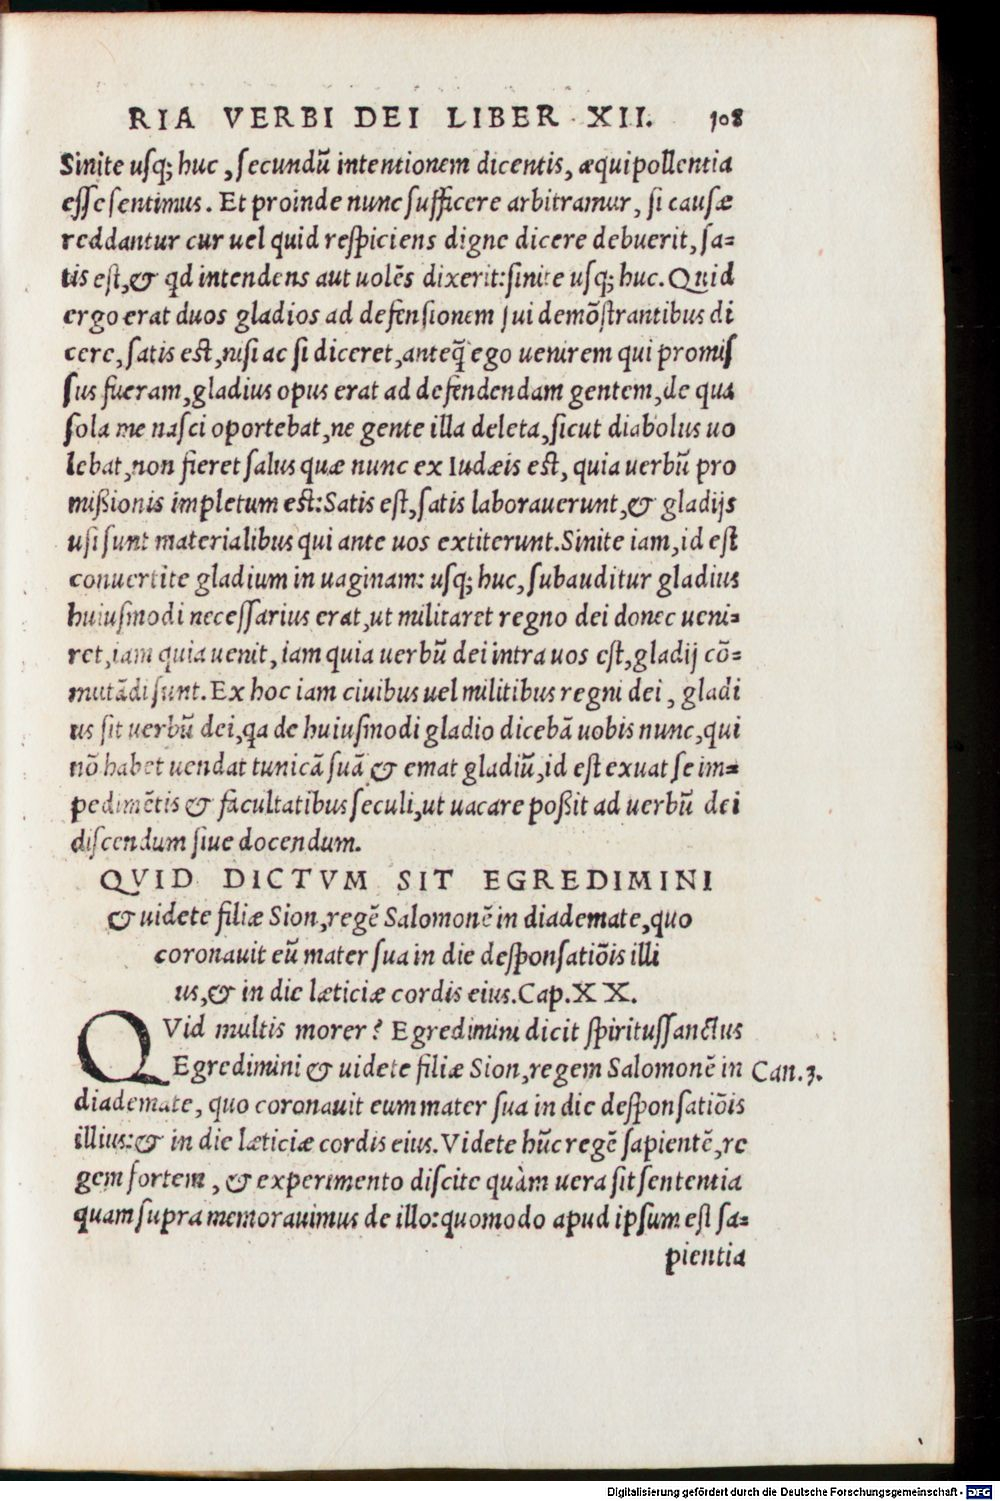 RIA VERBI DEI LIBER XII. 108
Sinite uſq; huc, ſecundū intentionem dicentis, æquipollentia
eſſe ſentimus. Et proinde nunc ſufficere arbitramur, ſi cauſæ
reddantur cur uel quid reſpiciens digne dicere debuerit, ſa=
tis eſt, & qd intendens aut uolēs dixerit: ſinite uſq; huc. Quid
ergo erat duos gladios ad defenſionem ſui demōſtrantibus di
cere, ſatis eſt, niſi ac ſi diceret, anteq̄ ego uenirem qui promiſ
ſus fueram, gladius opus erat ad defendendam gentem, de qua
ſola me naſci oportebat, ne gente illa deleta, ſicut diabolus uo
lebat, non fieret ſalus quæ nunc ex Iudæis eſt, quia uerbū pro
mißionis impletum eſt: Satis eſt, ſatis laborauerunt, & gladijs
uſi ſunt materialibus qui ante uos extiterunt. Sinite iam, id eſt
conuertite gladium in uaginam: uſq; huc, ſubauditur gladius
huiuſmodi neceſſarius erat, ut militaret regno dei donec ueni=
ret, iam quia uenit, iam quia uerbū dei intra uos eſt, gladij cō=
mutādi ſunt. Ex hoc iam ciuibus uel militibus regni dei, gladi
us ſit uerbū dei, qa de huiuſmodi gladio dicebā uobis nunc, qui
nō habet uendat tunicā ſuā & emat gladiū, id eſt exuat ſe im=
pedimētis & facultatibus ſeculi, ut uacare poßit ad uerbū dei
diſcendum ſiue docendum.
QVID DICTVM SIT EGREDIMINI
& uidete filiæ Sion, regē Salomonē in diademate, quo
coronauit eū mater ſua in die deſponſatiōis illi
us, & in die læticiæ cordis eius. Cap. XX.
QVid multis morer? Egredimini dicit ſpirituſſanctus
Egredimini & uidete filiæ Sion, regem Salomonē in Can. 3.
diademate, quo coronauit eum mater ſua in die deſponſatiōis
illius: & in die læticiæ cordis eius. Videte hūc regē ſapientē, re
gem fortem, & experimento diſcite quàm uera ſit ſententia
quam ſupra memorauimus de illo: quomodo apud ipſum eſt ſa=
pientia
Digitalisierung gefördert durch die Deutsche Forschungsgemeinschaft - DFG